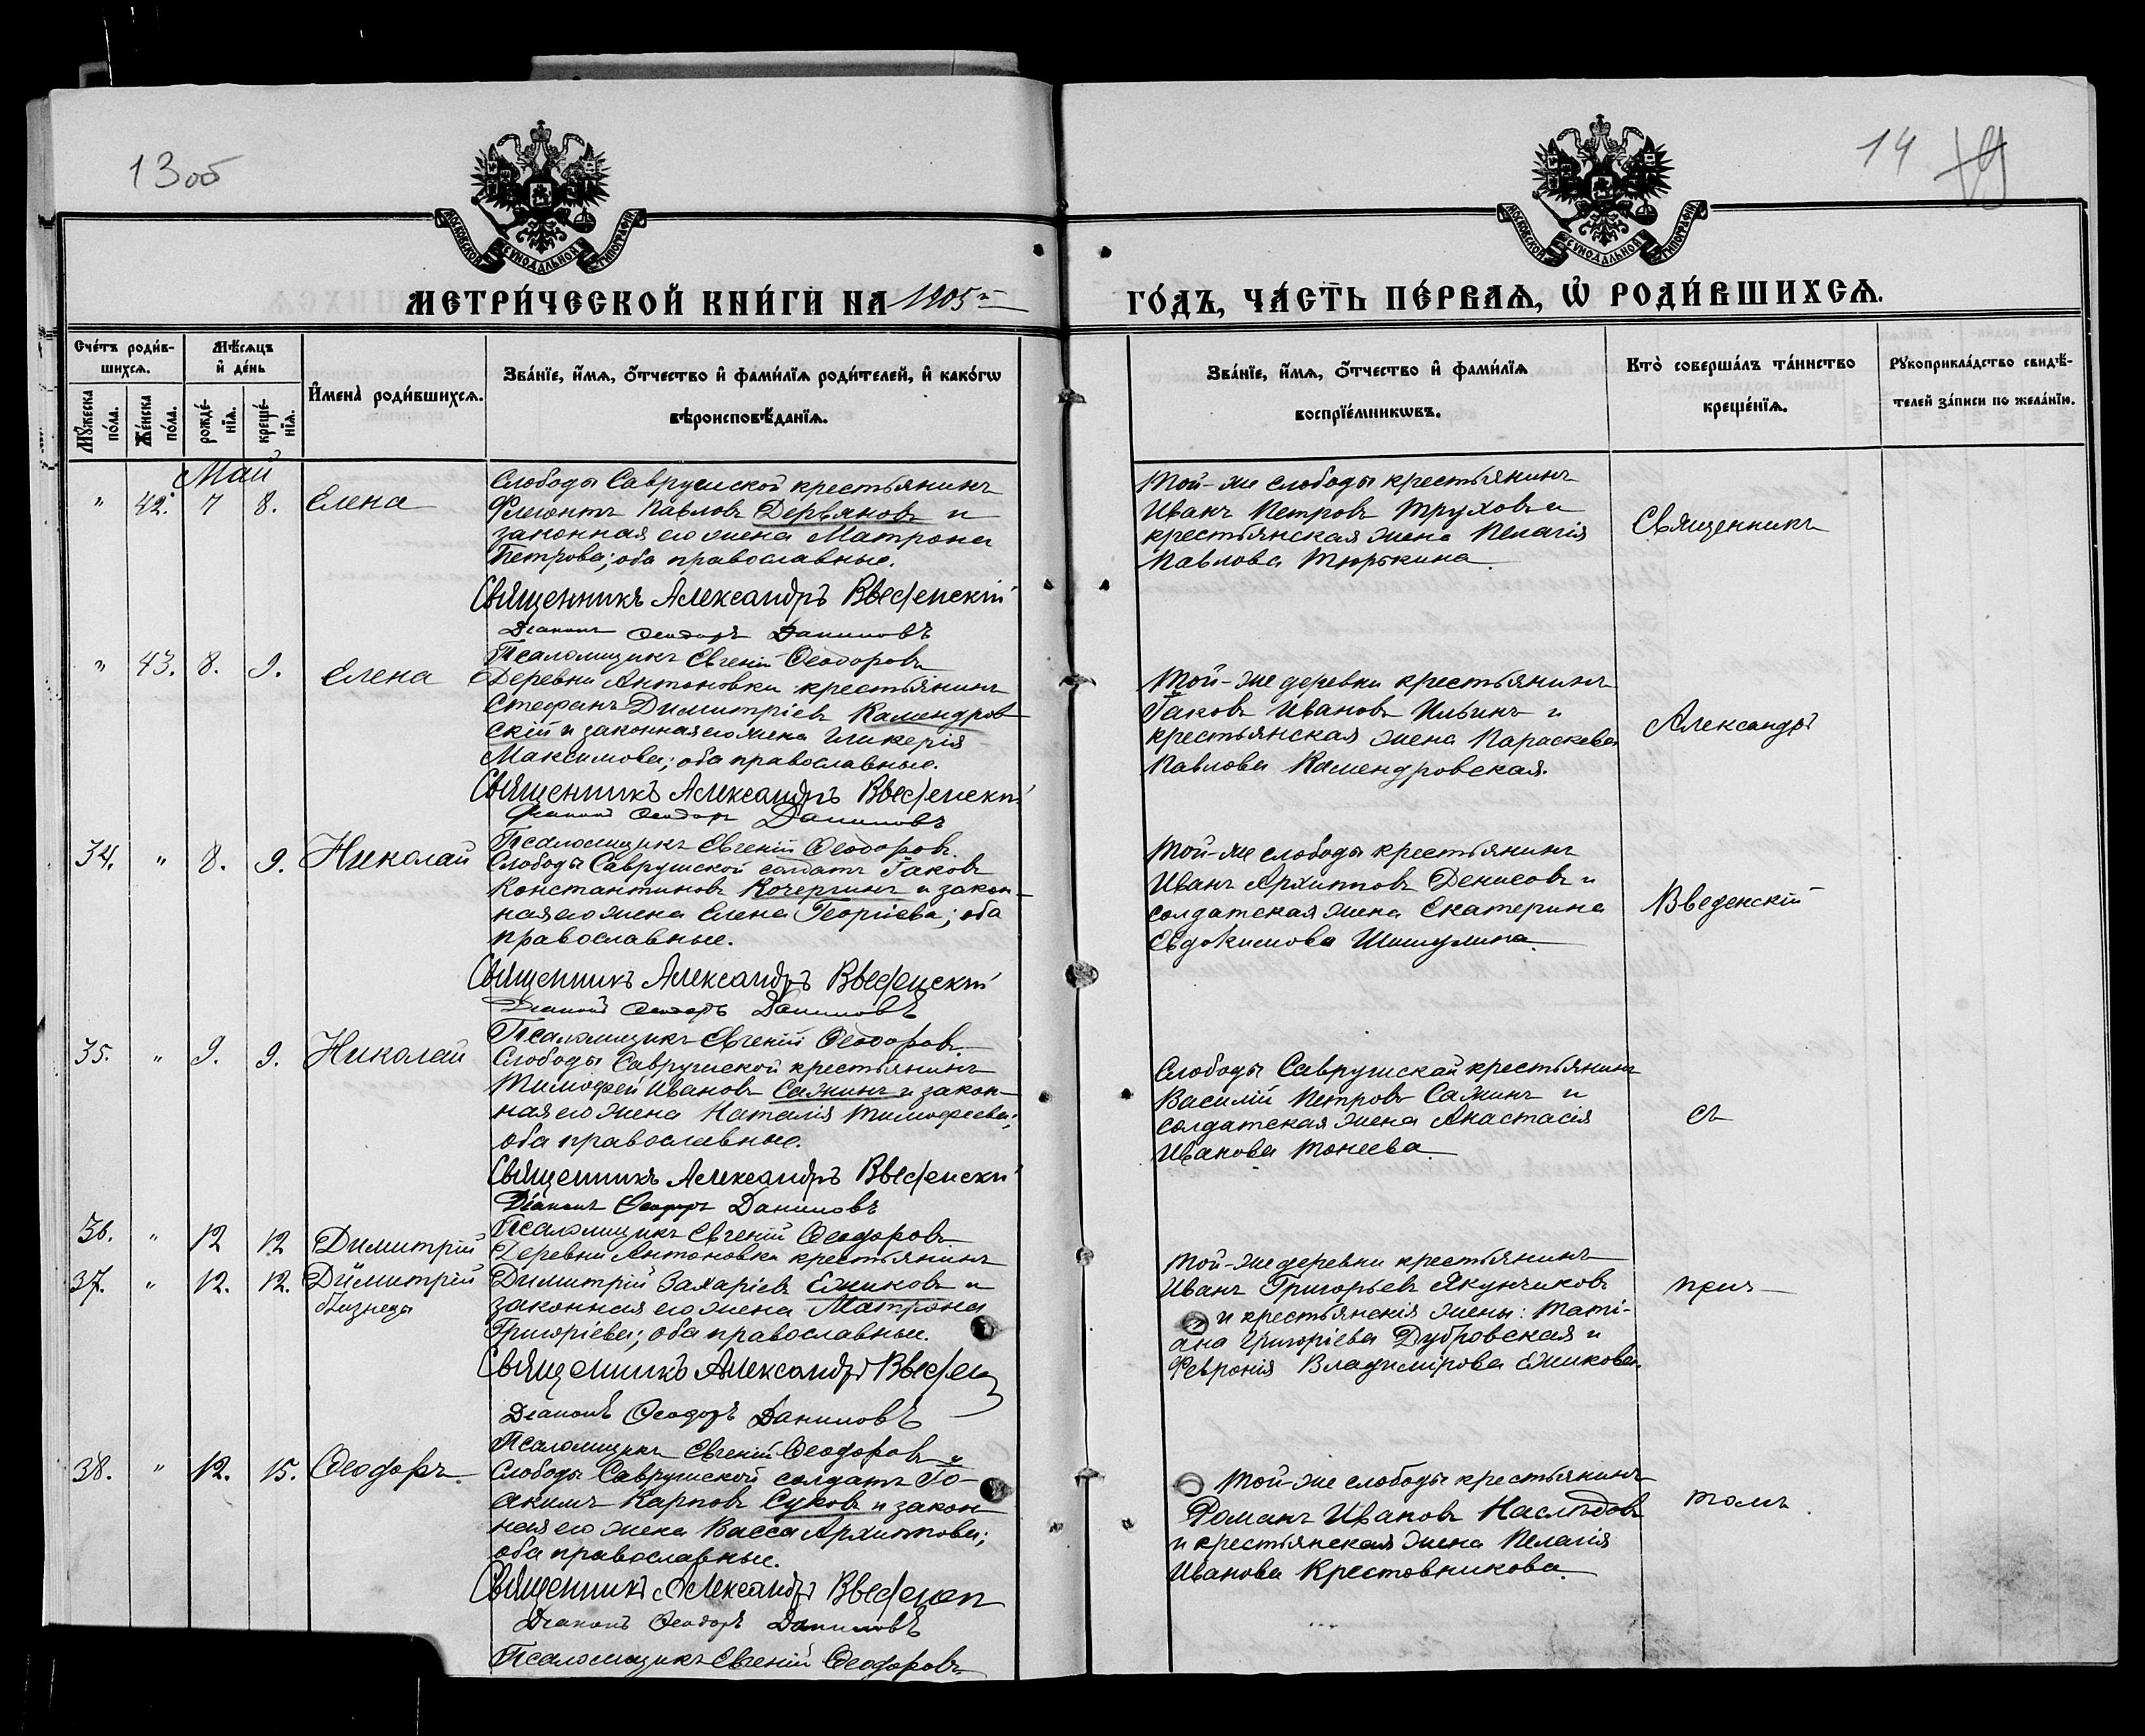 13 об
14
МОСКОВСКОЙ СУНОДАЛЬНОЙ ТИПОГРАФІИ
МОСКОВСКОЙ СУНОДАЛЬНОЙ ТИПОГРАФІИ
МЕТРИ́ЧЕСКОЙ КНИ́ГИ НА 1905й
ГО́ДЪ, ЧА́СТЬ ПЕ́РВАѦ, Ѡ҆ РОДИ́ВШИХСѦ.
Сче́тъ роди́в-
шихсѧ.
Мꙋ́жеска по́ла.
Же́нска по́ла.
Мѣ́сѧцъ
и҆ де́нь
рожде́-
нїѧ.
креще́-
нїѧ.
И҆мена̀ роди́вшихсѧ.
Зва́нїе, и҆́мѧ, о҆́тчество и҆ фами́лїѧ роди́телей, и҆ како́гѡ
вѣроисповѣ́данїѧ.
Зва́нїе, и҆́мѧ, о҆́тчество и҆ фами́лїѧ
воспрїе́мникѡвъ.
Кто̀ соверша́лъ та́инство
креще́нїѧ.
Рꙋкоприкла́дство свидѣ́-
телей за́писи по жела́нїю.
Май
" 42. 7 8. Елена
Слободы Саврушской крестьянинъ
Флегонтъ Павловъ Деревяновъ и
законная его жена Матрона
Петрова; оба православные.
Священникъ Александръ Введенскій
Діаконъ Ѳеодоръ Даниловъ
Псаломщикъ Евгеній Ѳеодоровъ
Той-же слободы крестьянинъ
Иванъ Петровъ Труховъ и
крестьянская жена Пелагія
Павлова Тюрькина.
Священникъ
" 43. 8. 9. Елена
Деревни Антоновки крестьянинъ
Стефанъ Димитріевъ Камендров-
скій и законная его жена Гликерія
Максимова; оба православные.
Священникъ Александръ Введенскій
Діаконъ Ѳеодоръ Даниловъ
Псаломщикъ Евгеній Ѳеодоровъ.
Той-же деревни крестьянинъ
Іаковъ Ивановъ Ильинъ и
крестьянская жена Параскева
Павлова Камендровская.
Александръ
34. " 8. 9. Николай
Слободы Саврушской солдатъ Іаковъ
Константиновъ Кочергинъ и закон-
ная его жена Елена Георгіева; оба
православные.
Священникъ Александръ Введенскій
Діаконъ Ѳеодоръ Даниловъ
Псаломщикъ Евгеній Ѳеодоровъ.
Той-же слободы крестьянинъ
Иванъ Архиповъ Денисовъ и
солдатская жена Екатерина
Евдокимова Шишулина.
Введенскій
35. " 9. 9. Николай
Слободы Саврушской крестьянинъ
Тимофей Ивановъ Сажинъ и закон-
ная его жена Наталія Тимофеева;
оба православные.
Священникъ Александръ Введенскій
Діаконъ Ѳеодоръ Даниловъ
Псаломщикъ Евгеній Ѳеодоровъ
Слободы Саврушской крестьянинъ
Василій Петровъ Сажинъ и
солдатская жена Анастасія
Иванова Тонеева.
съ
36. " 12 12 Димитрій
37. " 12. 12. Димитрій
близнецы
Деревни Антоновки крестьянинъ
Димитрій Захаріевъ Ежиковъ и
законная его жена Матрона
Григоріева; оба православные.
Священникъ Александръ Введен
Діаконъ Ѳеодоръ Даниловъ
Псаломщикъ Евгеній Ѳеодоровъ
Той-же деревни крестьянинъ
Иванъ Григорьевъ Якунчиковъ
и крестьянскія жены: Таті-
ана Григоріева Дубровская и
Феврония Владимірова Ежикова.
прич-
38. " 12. 15. Ѳеодоръ.
Слободы Саврушской солдатъ Іо-
акимъ Карповъ Суковъ и закон-
ная его жена Васса Архипова;
оба православные.
Священникъ Александръ Введенск
Діаконъ Ѳеодоръ Даниловъ
Псаломщикъ Евгеній Ѳеодоровъ
Той-же слободы крестьянинъ
Романъ Ивановъ Наслѣдовъ
и крестьянская жена Пелагія
Иванова Крестовникова.
томъ.